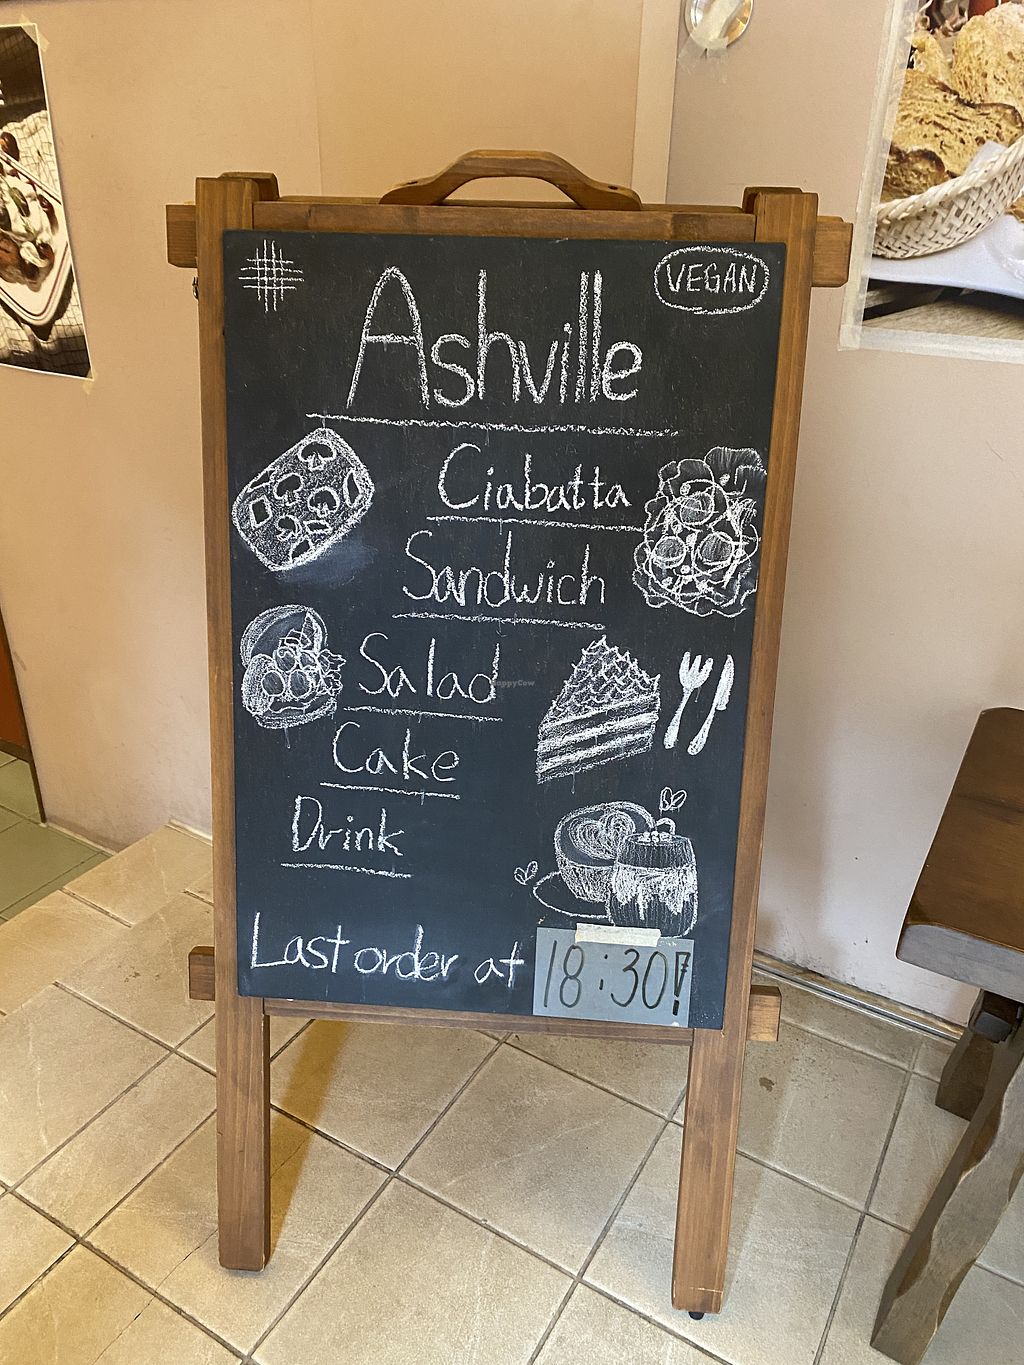 VEGAN
Ashville
Ciabatta
Sandwich
Salad
HappyCow
Cake
Drink
Last order at 18:30!